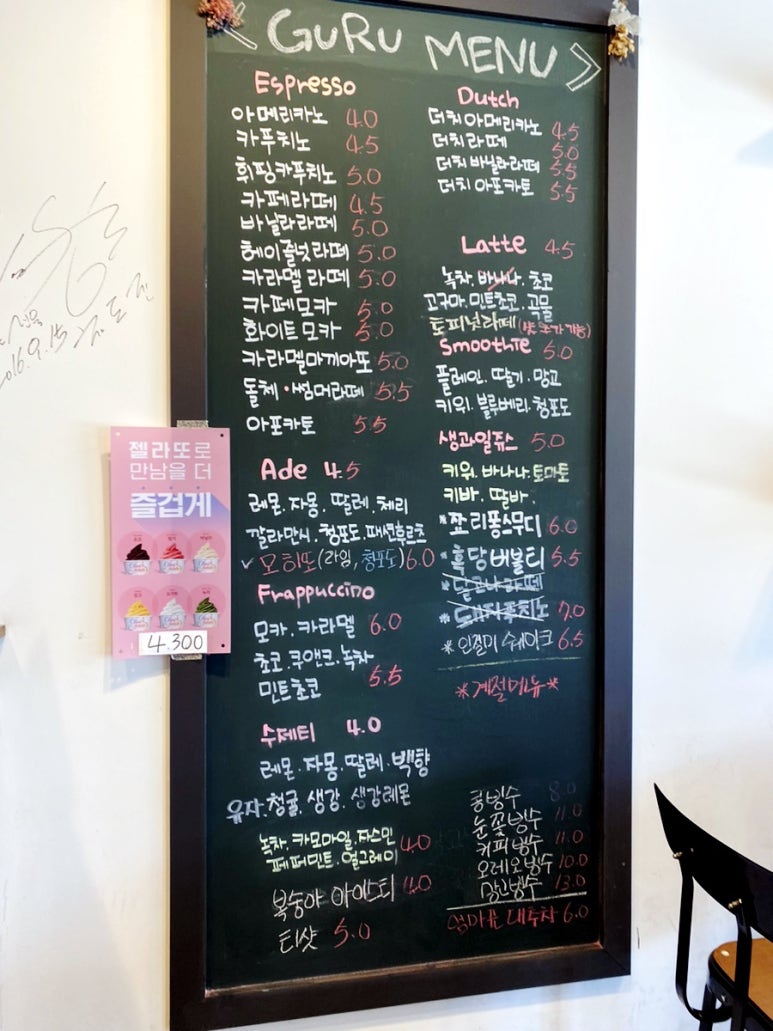 < GURU MENU >
Espresso
아메리카노 4.0
카푸치노 4.5
휘핑카푸치노 5.0
카페라떼 4.5
바닐라라떼 5.0
헤이즐넛라떼 5.0
카라멜라떼 5.0
카페모카 5.0
화이트모카 5.0
카라멜마끼아또 5.0
돌체·썸머라떼 5.5
아포카토 5.5
Ade 4.5
레몬.자몽.딸레.체리
깔라만시.청포도.패션후르츠
✓ 모히또(라임,청포도) 6.0
Frappuccino
모카.카라멜 6.0
쵸코.쿠앤크.녹차
민트쵸코 5.5
수제티 4.0
레몬.자몽.딸레.백향
유자.청귤.생강.생강레몬
녹차.카모마일.자스민
페퍼민트.얼그레이 4.0
복숭아 아이스티 4.0
티샷 5.0
Dutch
더치아메리카노 4.5
더치라떼 5.0
더치바닐라라떼 5.5
더치아포카토 5.5
Latte 4.5
녹차.바나나.쵸코
고구마.민트쵸코.곡물
토피넛라떼(샷 추가 가능)
Smoothie 5.0
플레인.딸기.망고
키위.블루베리.청포도
생과일쥬스 5.0
키위.바나나.토마토
키바.딸바.
*쬬리퐁스무디 6.0
*흑당버블티 5.5
*달고나라떼
*돼지푸치노 7.0
*인절미 쉐이크 6.5
*계절메뉴*
콩빙수 8.0
눈꽃빙수 11.0
커피빙수 11.0
오레오빙수 10.0
빙수 13.0
엄마표 대추차 6.0
젤라또로
만남을 더
즐겁게
4.300
2016.9.15